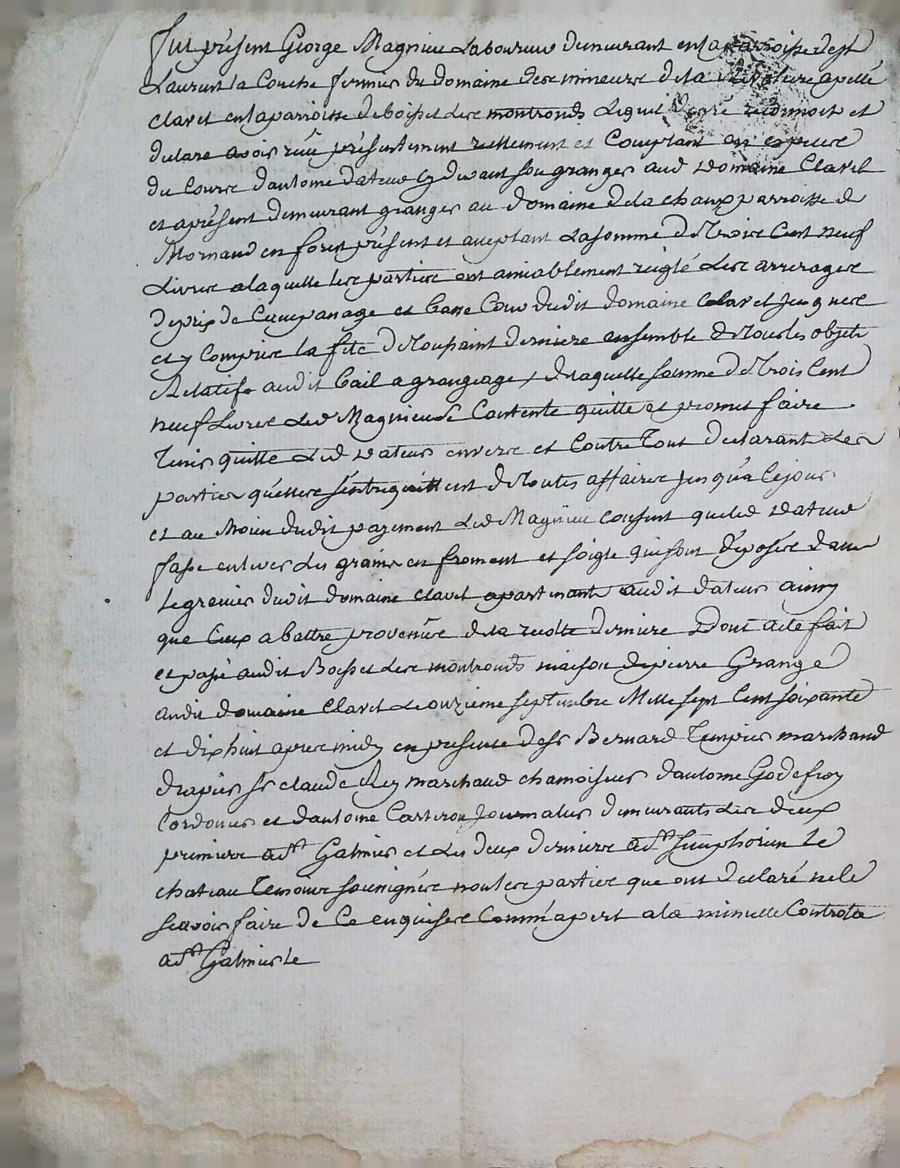 Fut présent George Magnieu Laboureur demeurant en la parroisse de st
Laurent la Conche fermier du domaine des mineurs de la apellé
claret en la parroisse de boisset les montronds Lequel de gré reconnoit et
declare avoir reçu présentement réellement et Comptant en espece
du Cours d'antoine dateur cy devant son granger aud Domaine Claret
et aprésent demeurant granger au domaine de la chaux parroisse de
Mornand en forest présent et aceptant La somme de Trois Cent neuf
Livres a laquelle les parties ont amiablement reiglé Les arrerages
de prix de et basse Cour dudit domaine Claret jusques
et y Compris la fete de Toussaint derniere ensemble de Tous les objets
Relatifs audit bail a grangeage, de laquelle somme de Trois Cent
neuf Livres Led Magnieu se Contente quitte et promet faire
Tenir quitte Led dateur envers et Contre Tout declarant Les
parties qu'elles s'entrequittent de Toutes affaires jusqu'a Ce jour
et au Moien dudit payement Led Magnieu consent que led dateur
fasse enlever Les grains en froment et soigle qui sont déposés dans
le grenier dudit domaine claret apartenants audit dateur ainsy
que Ceux a battre provenus de la recolte derniere Dont acte fait
et passé audit Boisset les montronds maison de pierre Grange
audit domaine Claret Le onzieme septembre Mille sept Cent soixante
et dix huit apres midy en presence de sr Bernard Tempier marchand
drapier sr claude Rey marchand chamoiseur d'antoine Godefroy
Cordonier et d'antoine Carteron Journalier demeurants Les deux
premiers a St Galmier et Les deux derniers a St Simphorien le
chateau Temoins soussignés non les parties que ont declaré ne le
scavoir faire de Ce enquises Comm'apert a la minutte Controlée
a St Galmier le